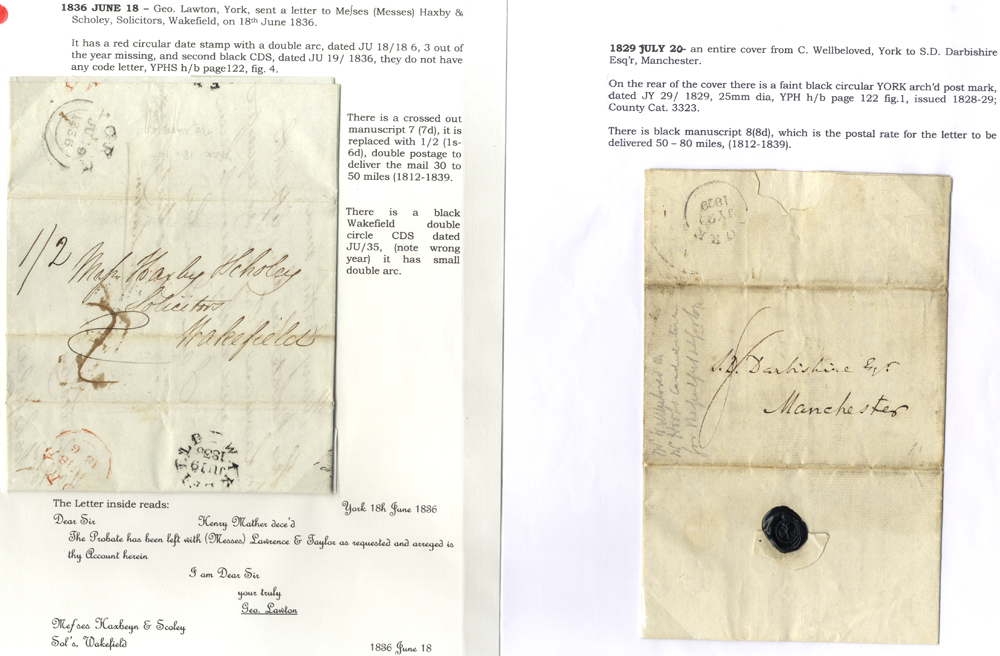 1836 JUNE 18 – Geo. Lawton, York, sent a letter to Meſses (Messes) Haxby &
Scholey, Solicitors, Wakefield, on 18th June 1836.
It has a red circular date stamp with a double arc, dated JU 18/18 6, 3 out of
the year missing, and second black CDS, dated JU 19/ 1836, they do not have
any code letter, YPHS h/b page122, fig. 4.
There is a crossed out
manuscript 7 (7d), it is
replaced with 1/2 (1s-
6d), double postage to
deliver the mail 30 to
50 miles (1812-1839.
There is a black
Wakefield double
circle CDS dated
JU/35, (note wrong
year) it has small
double arc.
JU 19
1836
1/2
Messrs Haxby Scholey
Solicitors
Wakefield
WAKEFIELD
JU 19
1836
The Letter inside reads:
York 18h June 1836
Dear Sir Henry Mather dece'd
The Probate has been left with (Messes) Lawrence & Taylor as requested and arreged is
thy Account herein
I am Dear Sir
your truly
Geo. Lawton
Meſses Haxbeyn & Scoley
Sol's, Wakefield
1836 June 18
1829 JULY 20- an entire cover from C. Wellbeloved, York to S.D. Darbishire
Esq'r, Manchester.
On the rear of the cover there is a faint black circular YORK arch'd post mark,
dated JY 29/ 1829, 25mm dia, YPH h/b page 122 fig.1, issued 1828-29;
County Cat. 3323.
There is black manuscript 8(8d), which is the postal rate for the letter to be
delivered 50 – 80 miles, (1812-1839).
YORK
1829
8
S. D. Darbishire Esqr
Manchester